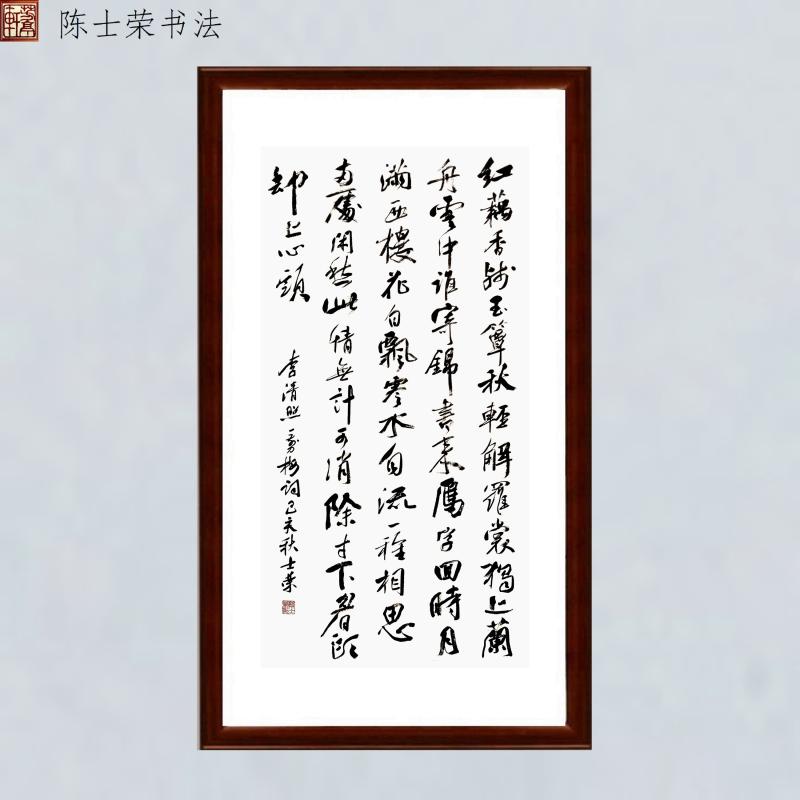 陈士荣书法
红藕香残玉簟秋輕解羅裳獨上蘭
舟雲中誰寄錦書来雁字回時月
滿西樓花自飄零水自流一種相思
両處閑愁此情無計可消除才下眉頭
却上心頭
李清照一剪梅词己亥秋士荣